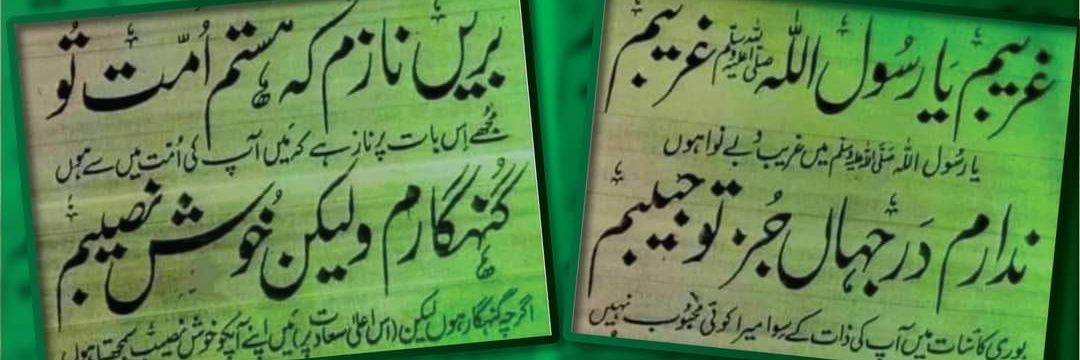 غریبم یا رسُول اللہ ﷺ غریبم
یا رسُول اللہ ﷺ میں غریب و بے نوا ہوں
ندارم دَر جہاں جُز تو حبیبم
پوری کائنات میں آپ کی ذات کے سِوا میرا کوئی محبُوب نہیں
بریں نازم کہ ہستم اُمّت تُو
مُجھے اِس بات پر ناز ہے کہ مَیں آپ کی اُمّت میں سے ہوں
گُنہگارم ولیکن خُوش نصیبم
اگرچہ گنہگار ہوں لیکن (اس اعلیٰ سعادت پر) مَیں اپنے آپکو خوش نصیب سمجھتا ہوں